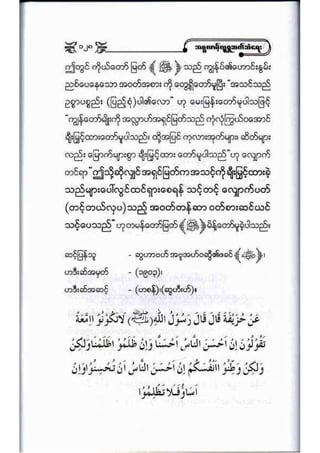 ၁၂၈
အစ္စလာမ့်လူ့ကျင့်ဝတ်သိပ္ပံ
ဤတွင် ကိုယ်တော်မြတ် (ﷺ) သည် ကျွန်ုပ်၏ဟောင်းနွမ်း
ညစ်ပေနေသော အဝတ်အစား ကို တွေ့ရှိတော်မူပြီး “အသင်သည်
ဥစ္စာပစ္စည်း (ပြည့်စုံ)ပါ၏လော” ဟု မေးမြန်းတော်မူပါသဖြင့်
“ကျွန်တော်မျိုးကို အလ္လာဟ်အရှင်မြတ်သည် ကုံလုံကြွယ်ဝအောင်
ချီးမြှင့်ထားတော်မူပါသည်။ ထို့အပြင် ကုလားအုတ်များ၊ ဆိတ်များ
လည်း မြောက်များစွာ ချီးမြှင့်ထား တော်မူပါသည်”ဟု လျှောက်
တင်ရာ “ဤသို့ဆိုလျှင် အရှင်မြတ်က အသင့်ကို ချီးမြှင့်ထားခဲ့
သည်များပေါ်လွင်ထင်ရှားစေရန် သင့်တင့် လျှောက်ပတ်
(တင့်တယ်လှပ) သည့် အဝတ်တန်ဆာ ဝတ်စားဆင်ယင်
သင့်ပေသည်” ဟုတမန်တော်မြတ် (ﷺ) မိန့်တော်မူခဲ့ပါသည်။
ဆင့်ပြန်သူ - ဆွဟာဗဟ် အဗူအဟ်ဝဆွ်၏ဖခင်
ဟဒီးဆ်အမှတ် - (၁၉၀၃)၊
ဟဒီးဆ်အဆင့် - (ဟစန်)၊ (ဆွဟီးဟ်)။
عَنْ حُذَيْفَةَ قَالَ قَالَ رَسُوْلُ اللّٰهِ (ﷺ) لَاتَكُوْنُوْا اِمَّعَةً
تَقُوْلُوْنَ اِنْ اَحْسَنَ النَّاسُ اَحْسَنَّا وَاِنْ ظَلَمُوْا ظَلَمْنَا وَلٰكِنْ
وَلٰكِنْ وَطِّنُوْا اَنْفُسَكُمْ اِنْ اَحْسَنَ النَّاسُ اَنْ تُحْسِنُوْا وَاِنْ
اَسَاؤُا فَلَا تَظْلِمُوْا